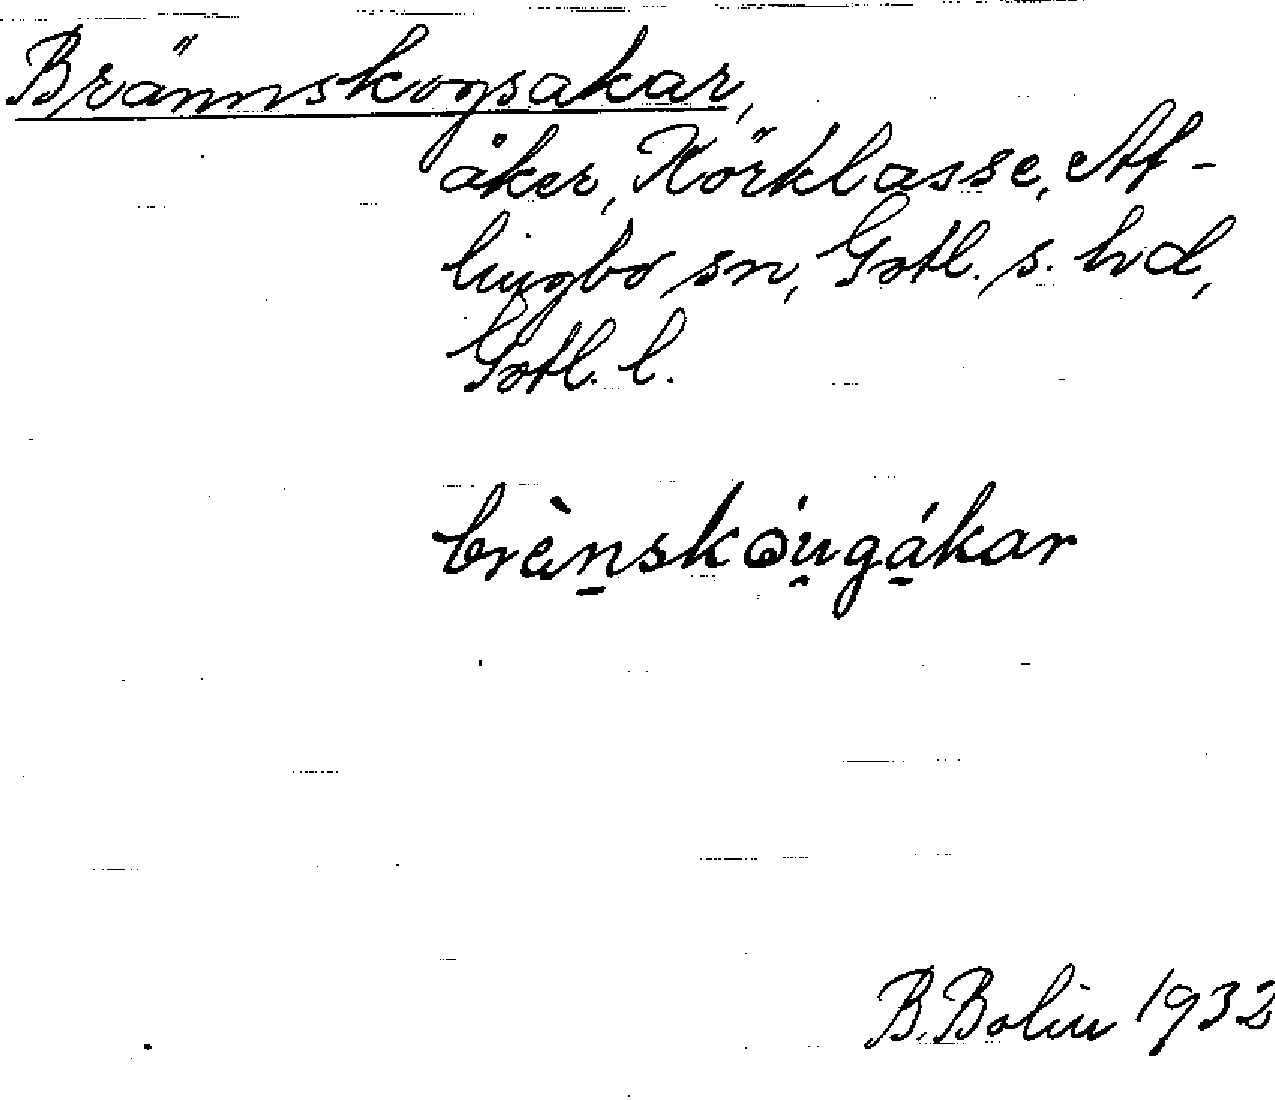 Brännskogsakar,
åker, Hörklasse, Al-
lingbo sn, Gotl. s. hd,
Gotl. l.
brèn̠skóu̠gá̠kar
B. Bolin 1932